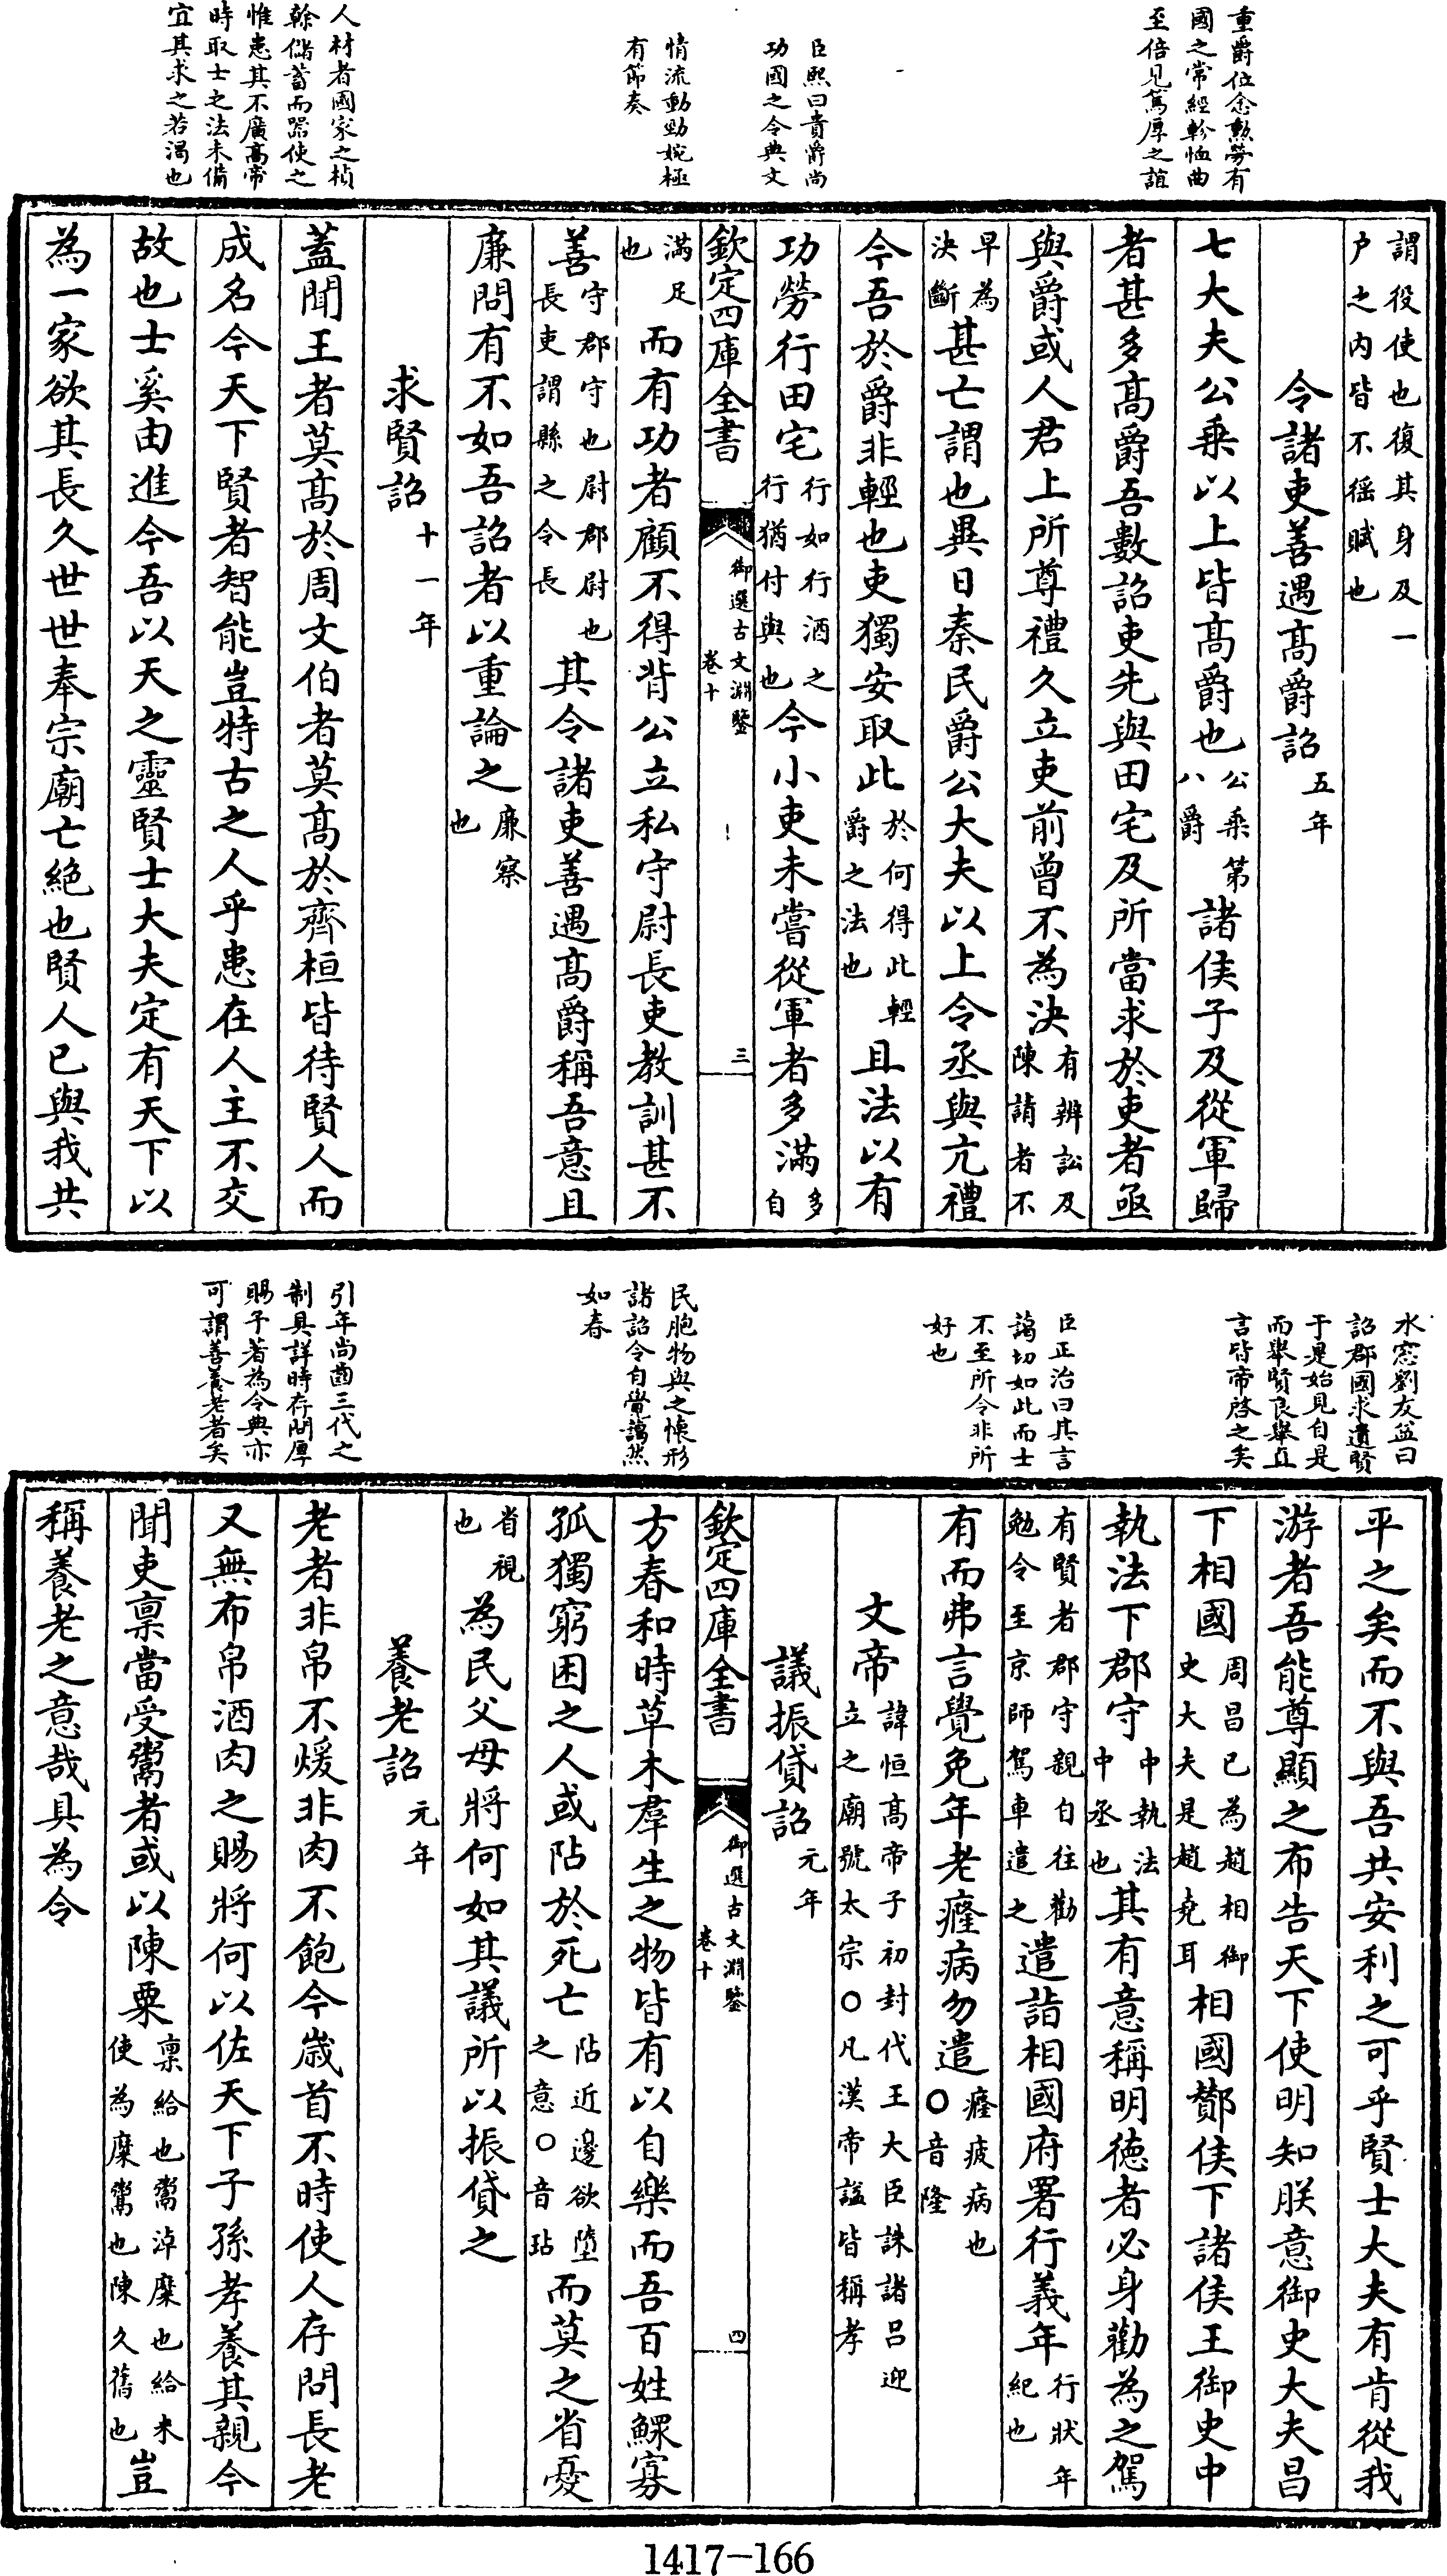 重爵位念勲勞有
國之常經軫恤曲
至倍見篤厚之誼
臣熙曰貴爵尚
功國之令典文
情流動勁婉極
有節奏
人材者國家之楨
榦儲蓄而器使之
惟患其不廣髙帝
時取士之法未備
宜其求之若渴也
謂役使也復其身及一
户之内皆不徭賦也
令諸吏善遇髙爵詔五年
七大夫公乗以上皆髙爵也公乗第八爵諸侯子及從軍歸
者甚多髙爵吾數詔吏先與田宅及所當求於吏者亟
與爵或人君上所尊禮久立吏前曾不為決有辨訟及陳請者不
早為決斷甚亡謂也異日秦民爵公大夫以上令丞與亢禮
今吾於爵非輕也吏獨安取此於何得此輕爵之法也且法以有
功勞行田宅行如行酒之行猶付與也今小吏未嘗從軍者多滿多自
欽定四庫全書
御選古文淵鑒
卷十
三
滿足也而有功者顧不得背公立私守尉長吏教訓甚不
善守郡守也尉郡尉也長吏謂縣之令長其令諸吏善遇髙爵稱吾意且
廉問有不如吾詔者以重論之廉察也
求賢詔十一年
蓋聞王者莫髙於周文伯者莫髙於齊桓皆待賢人而
成名今天下賢者智能豈特古之人乎患在人主不交
故也士奚由進今吾以天之靈賢士大夫定有天下以
為一家欲其長久世世奉宗廟亡絶也賢人已與我共
水窓劉友益曰
詔郡國求遺賢
于是始見自是
而舉賢良舉直
言皆帝啓之矣
臣正治曰其言
藹切如此而士
不至所令非所
好也
民胞物與之懐形
諸詔令自覺藹然
如春
引年尚齒三代之
制具詳時存問厚
賜予著為令典亦
可謂善養老者矣
平之矣而不與吾共安利之可乎賢士大夫有肯從我
游者吾能尊顯之布告天下使明知朕意御史大夫昌
下相國周昌已為趙相御史大夫是趙堯耳相國酇侯下諸侯王御史中
執法下郡守中執法中丞也其有意稱明徳者必身勸為之駕
有賢者郡守親自往勸勉令至京師駕車遣之遣詣相國府署行義年行狀年紀也
有而弗言覺免年老癃病勿遣癃疲病也〇音隆
文帝諱恒髙帝子初封代王大臣誅諸吕迎立之廟號太宗〇凡漢帝諡皆稱孝
議振貸詔元年
欽定四庫全書
御選古文淵鑒
卷十
四
方春和時草木羣生之物皆有以自樂而吾百姓鰥寡
孤獨窮困之人或阽於死亡阽近邊欲墮之意〇音玷而莫之省憂
省視也為民父母將何如其議所以振貸之
養老詔元年
老者非帛不煖非肉不飽今歳首不時使人存問長老
又無布帛酒肉之賜將何以佐天下子孫孝養其親今
聞吏禀當受鬻者或以陳粟禀給也鬻淖糜也給米使為糜鬻也陳久舊也豈
稱養老之意哉具為令
1417-166